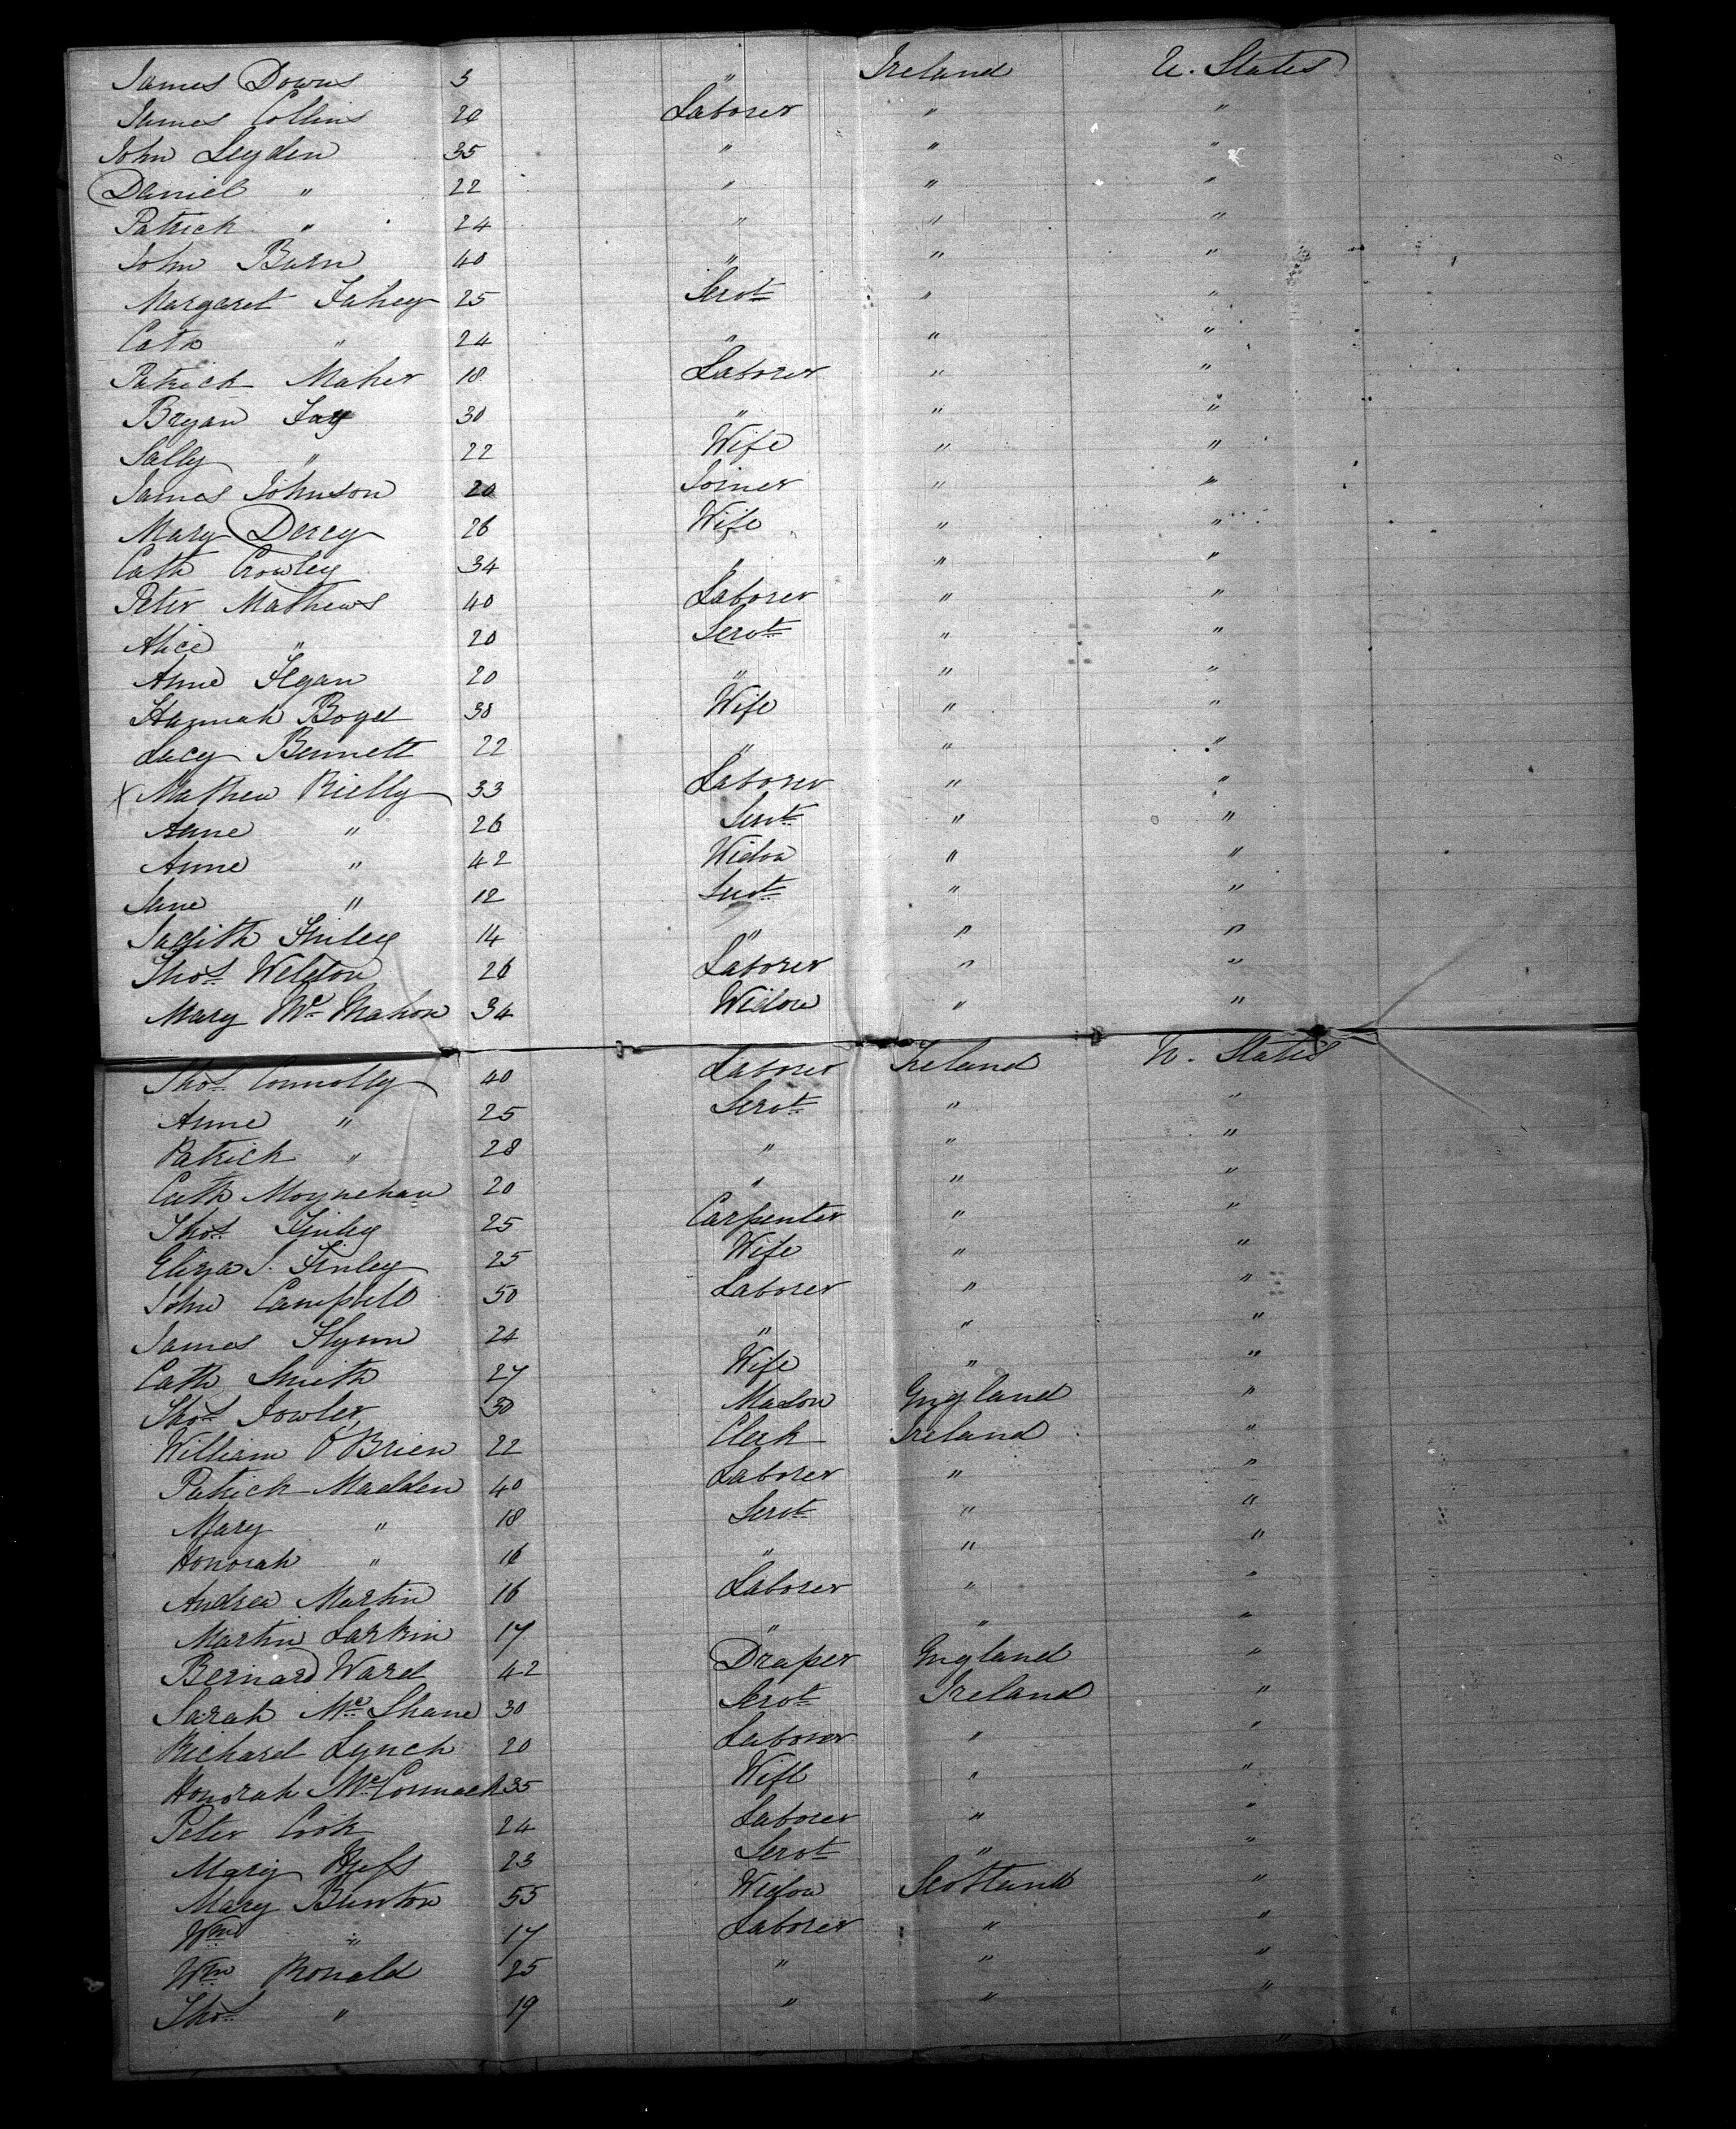 James Downs 3 " Ireland U. States
James Collins 20 Laborer " "
John Leyden 35 " " "
Daniel " 22 " " "
Patrick " 24 " " "
John Burn 40 " " "
Margaret Fahey 25 Servt " "
Cath " 24 " " "
Patrick Maher 18 Laborer " "
Bryan Fay 30 " " "
Sally " 22 Wife " "
James Johnson 20 Joiner " "
Mary Darcy 26 Wife " "
Cath Crowley 34 " " "
Peter Mathews 40 Laborer " "
Alice " 20 Servt " "
Anne Egan 20 " " "
Hannah Boyd 30 Wife " "
Lucy Bennett 22 " " "
X Mathew Rielly 33 Laborer " "
Anne " 26 Servt " "
Anne " 42 Widow " "
Jane " 12 Servt " "
Judith Finley 14 " " "
Thos Weldon 26 Laborer " "
Mary Mc Mahon 34 Widow " "
Thos Connolly 40 Laborer Ireland U. States
Anne " 25 Servt " "
Patrick " 28 " " "
Cath Moynehan 20 " " "
Thos Finley 25 Carpenter " "
Eliza J. Finley 25 Wife " "
John Campbell 50 Laborer " "
James Flynn 24 " " "
Cath Smith 27 Wife " "
Thos Fowler 30 Mason England "
William O'Brien 22 Clerk Ireland "
Patrick Madden 40 Laborer " "
Mary " 18 Servt " "
Honorah " 16 " " "
Andrew Martin 16 Laborer " "
Martin Larkin 17 " " "
Bernard Ward 42 Draper England "
Sarah Mc Shane 30 Servt Ireland "
Richard Lynch 20 Laborer " "
Honorah McCormack 35 Wife " "
Peter Cook 24 Laborer " "
Mary 23 Servt " "
Mary Bunton 55 Widow Scotland "
Wm " 17 Laborer " "
Wm Ronald 25 " " "
Thos " 19 " " "